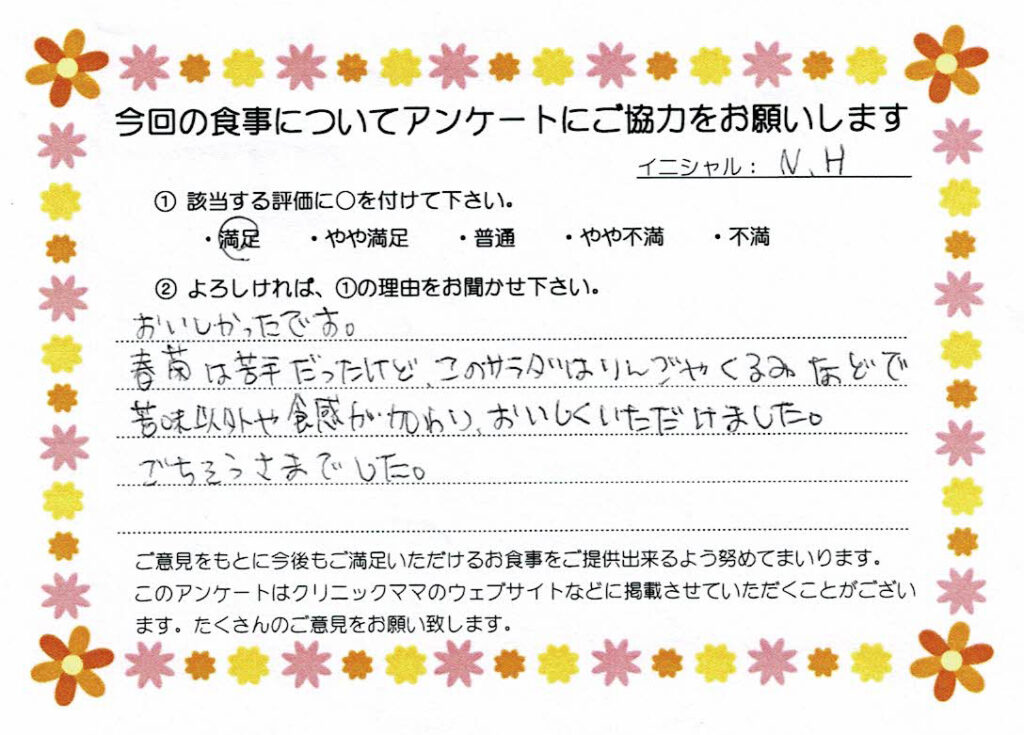 今回の食事についてアンケートにご協力をお願いします
イニシャル： N、H
① 該当する評価に○を付けて下さい。
・満足 ・やや満足 ・普通 ・やや不満 ・不満
② よろしければ、①の理由をお聞かせ下さい。
おいしかったです。
春菊は苦手だったけど、このサラダはりんごやくるみなどで
苦味以外や食感が加わり、おいしくいただけました。
ごちそうさまでした。
ご意見をもとに今後もご満足いただけるお食事をご提供出来るよう努めてまいります。
このアンケートはクリニックママのウェブサイトなどに掲載させていただくことがござい
ます。たくさんのご意見をお願い致します。